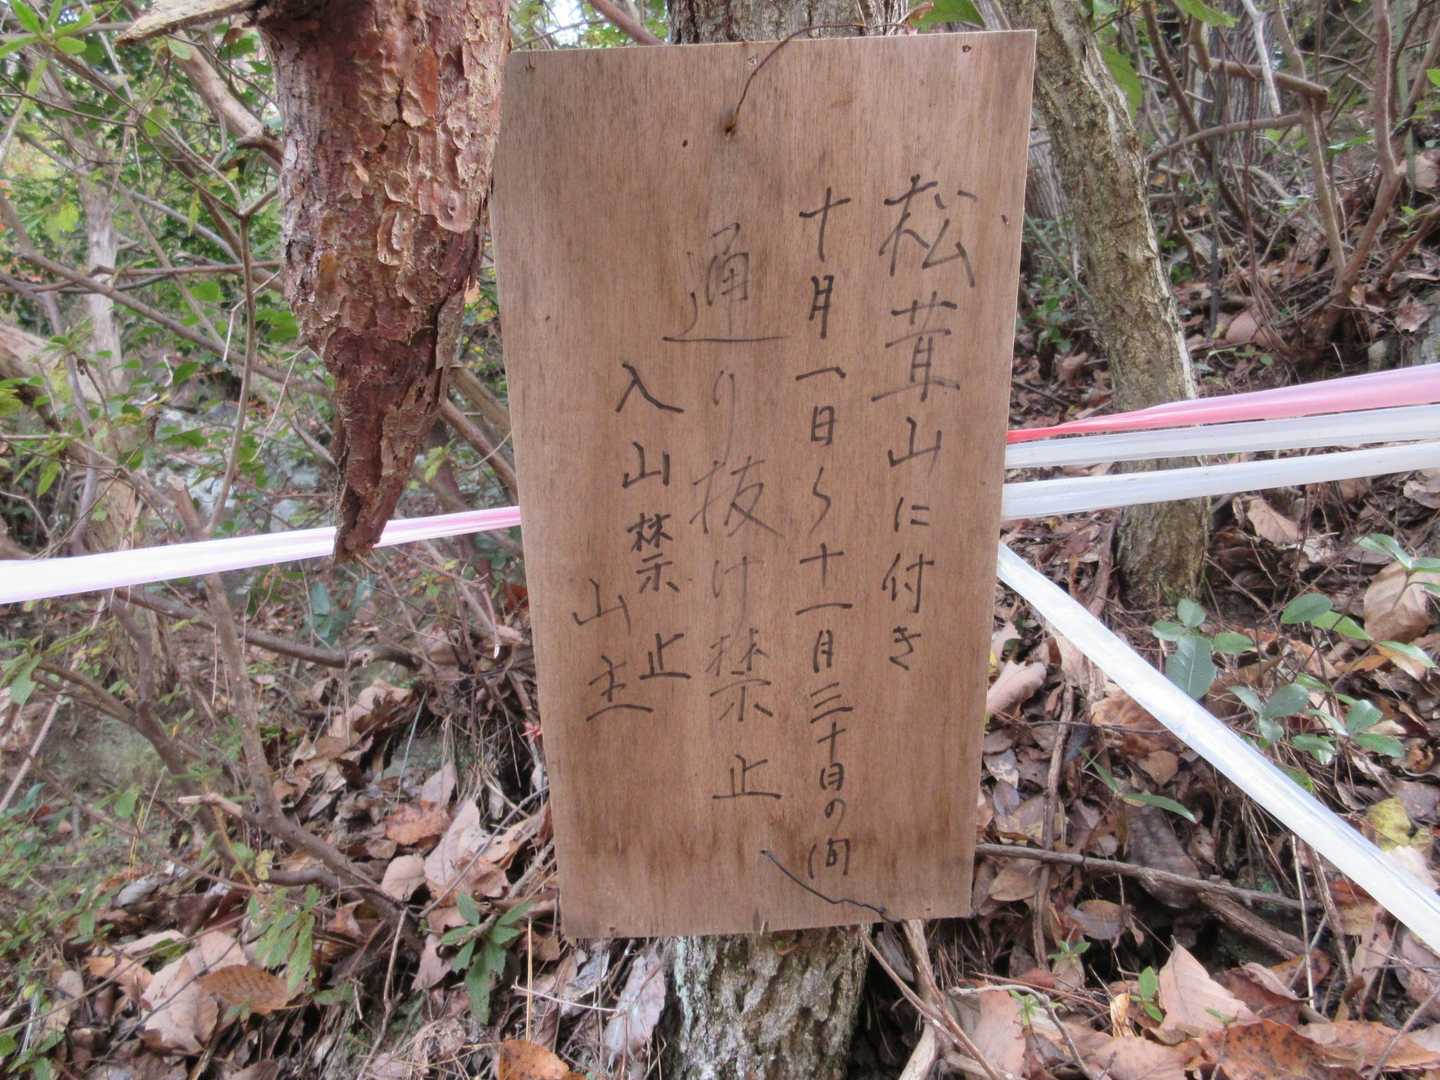 松茸山に付き
十月一日〜十一月三十日の間
通り抜け禁止
入山禁止
山主